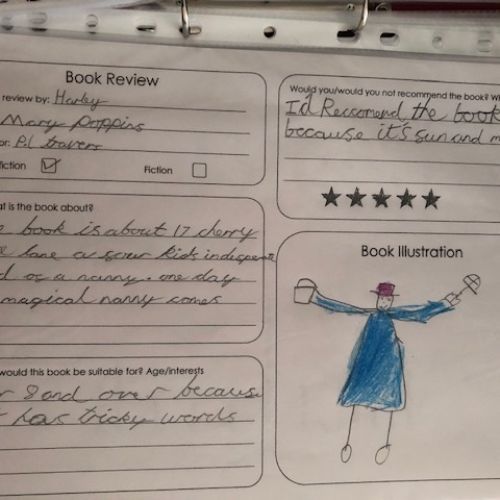 Book Review
review by: Harley
Mary poppins
or: P.L travers
fiction
Fiction
at is the book about?
book is about 17 cherry
lane a four kids indesperate
d of a nanny. one day
magical nanny comes
would this book be suitable for? Age/interests
r 8 and over because
t has tricky words
Would you/would you not recommend the book? W
I'd Reccomend the book
because it's sun and m
Book Illustration